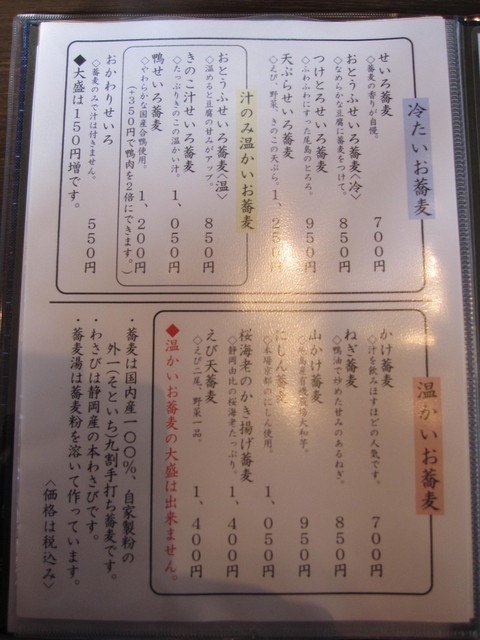 冷たいお蕎麦
せいろ蕎麦 700円
◇蕎麦の香りが自慢。
おとうふせいろ蕎麦〈冷〉 850円
◇なめらかな豆腐に蕎麦をつけて。
つけとろせいろ蕎麦 950円
◇ふわふわにすった尾島のとろろ。
天ぷらせいろ蕎麦 1、250円
◇えび、野菜、きのこの天ぷら。
汁のみ温かいお蕎麦
おとうふせいろ蕎麦〈温〉 850円
◇温めると豆腐の甘みがアップ。
きのこ汁せいろ蕎麦 1、050円
◇たっぷりきのこの温かい汁。
鴨せいろ蕎麦 1、200円
◇やわらかな国産合鴨使用。
(+350円で鴨肉を2倍にできます。)
おかわりせいろ 550円
◇蕎麦のみで汁は付きません。
◆大盛は150円増です。
温かいお蕎麦
かけ蕎麦 700円
◇汁を飲みほすほどの人気です。
ねぎ蕎麦 850円
◇鴨油で炒めた甘みのあるねぎ。
山かけ蕎麦 950円
にしん蕎麦 1、050円
◇本場京都のにしん使用。
桜海老のかき揚げ蕎麦 1、400円
◇静岡由比の桜海老たっぷり。
えび天蕎麦 1、400円
◇えび二尾、野菜一品。
◆温かいお蕎麦の大盛は出来ません。
・蕎麦は国内産一〇〇%、自家製粉の
外一(そといち)九割手打ち蕎麦です。
・わさびは静岡産の本わさびです。
・蕎麦湯は蕎麦粉を溶いて作っています。
〈価格は税込み〉